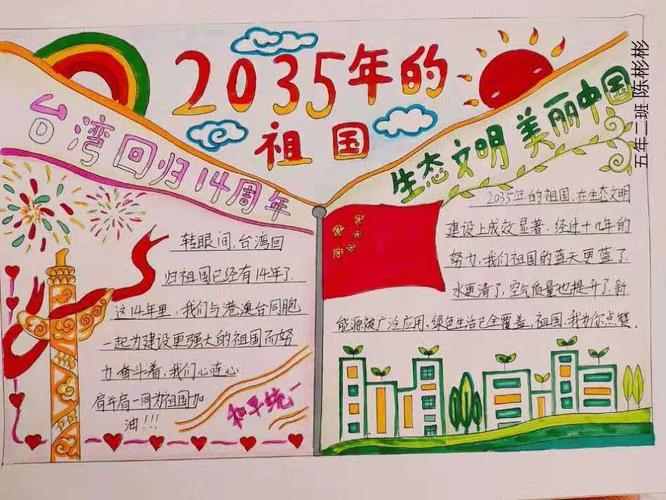 2035年的
祖国
台湾回归14周年
生态文明 美丽中国
五年二班 陈彬彬
转眼间,台湾回
归祖国已经有14年了.
这14年里,我们与港澳台同胞
一起为建设更强大的祖国而努
力奋斗着,我们心连心
肩并肩一同为祖国加
油!!!
和平统一
2035年的祖国,在生态文明
建设上成效显著,经过十几年的
努力,我们祖国的蓝天更蓝了
水更清了,空气质量也提升了.新
能源被广泛应用,绿色生活已全覆盖.祖国,我为你点赞.